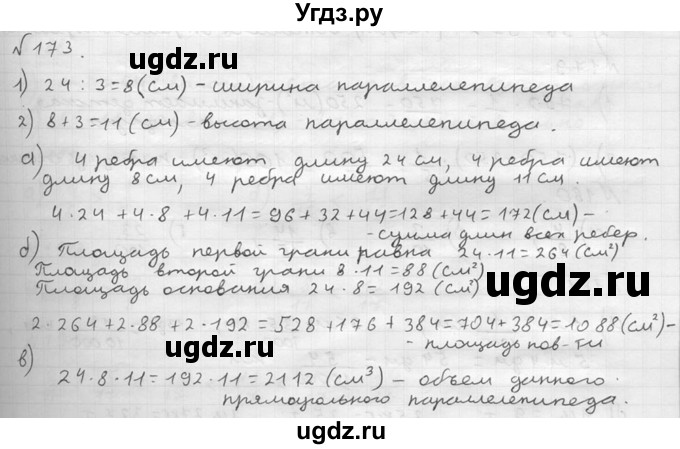 Угдз.ру
№173.
1) 24 : 3=8(см) - ширина параллелепипеда
2) 8+3=11(см) - высота параллелепипеда.
а) 4 ребра имеют длину 24см, 4 ребра имеют
длину 8см, 4 ребра имеют длину 11см.
4·24 +4·8 +4·11=96+32+44=128+44=172(см)-
-сумма длин всех ребер.
б) Площадь первой грани равна 24·11=264(см²)
Площадь второй грани 8·11=88(см²)
Площадь основания 24·8=192(см²)
2·264+2·88+2·192=528+176+384=704+384=1088(см²)-
- площадь пов-ти
в)
24·8·11=192·11=2112(см³) - объем данного
прямоугольного параллелепипеда.
ugdz.ru
ugdz.ru
ugdz.ru
ugdz.ru
ugdz.ru